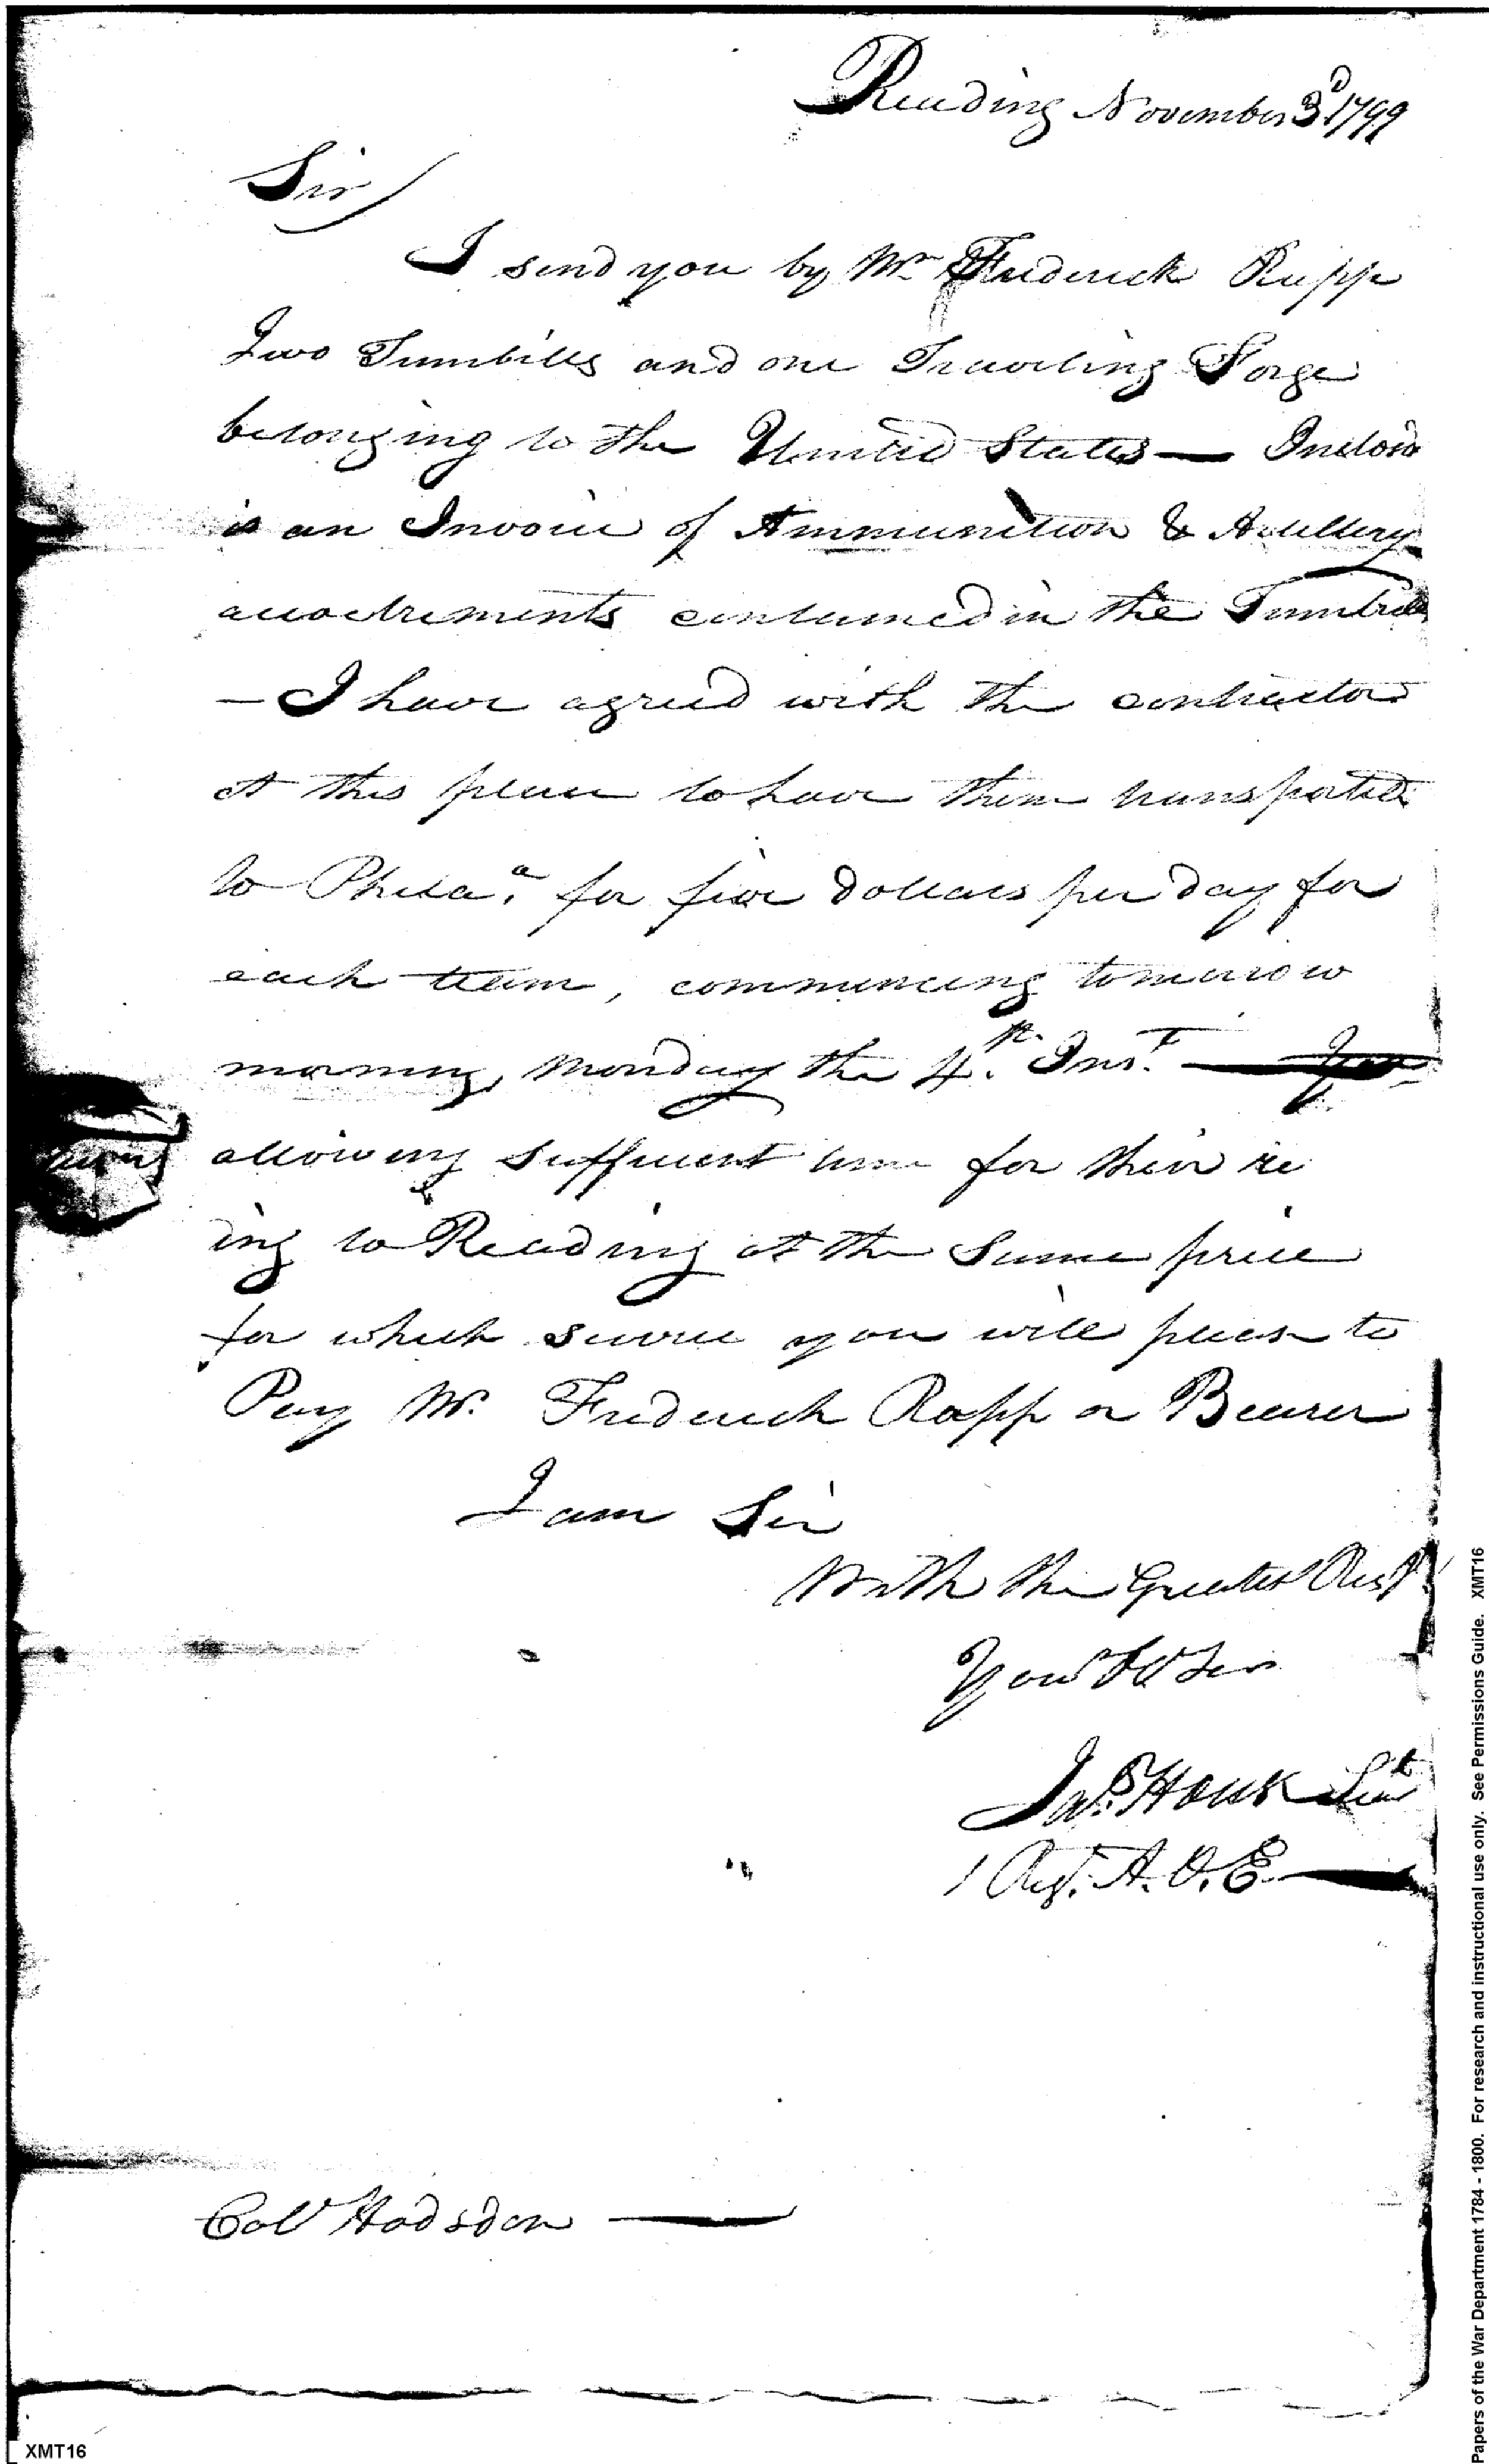 Reading November 3d 1799
Sir/
I send you by Mr Frederick Rapp
Two Tumbills and one Traveling Forge
belonging to the United States — Inclosd
is an Invoice of Ammunition & Artillery
accoctrements contained in the Tumbrils
— I have agreed with the contractor
at this place to have them transported
to Phila.a for five dollars per day for
each team, commencing tomorrow
morning, Monday the 4.th Inst. —
allowing sufficient time for their re
ing to Reading at the same price
for which service you will please to
Pay Mr. Frederick Rapp or Bearer
I am Sir
With the Greatest Respt
Your Ob Ser
Jno. Houk Lieut
1 Regt. A. & E. —
Coll Hodsdon —
XMT16
Papers of the War Department 1784 - 1800. For research and instructional use only. See Permissions Guide. XMT16